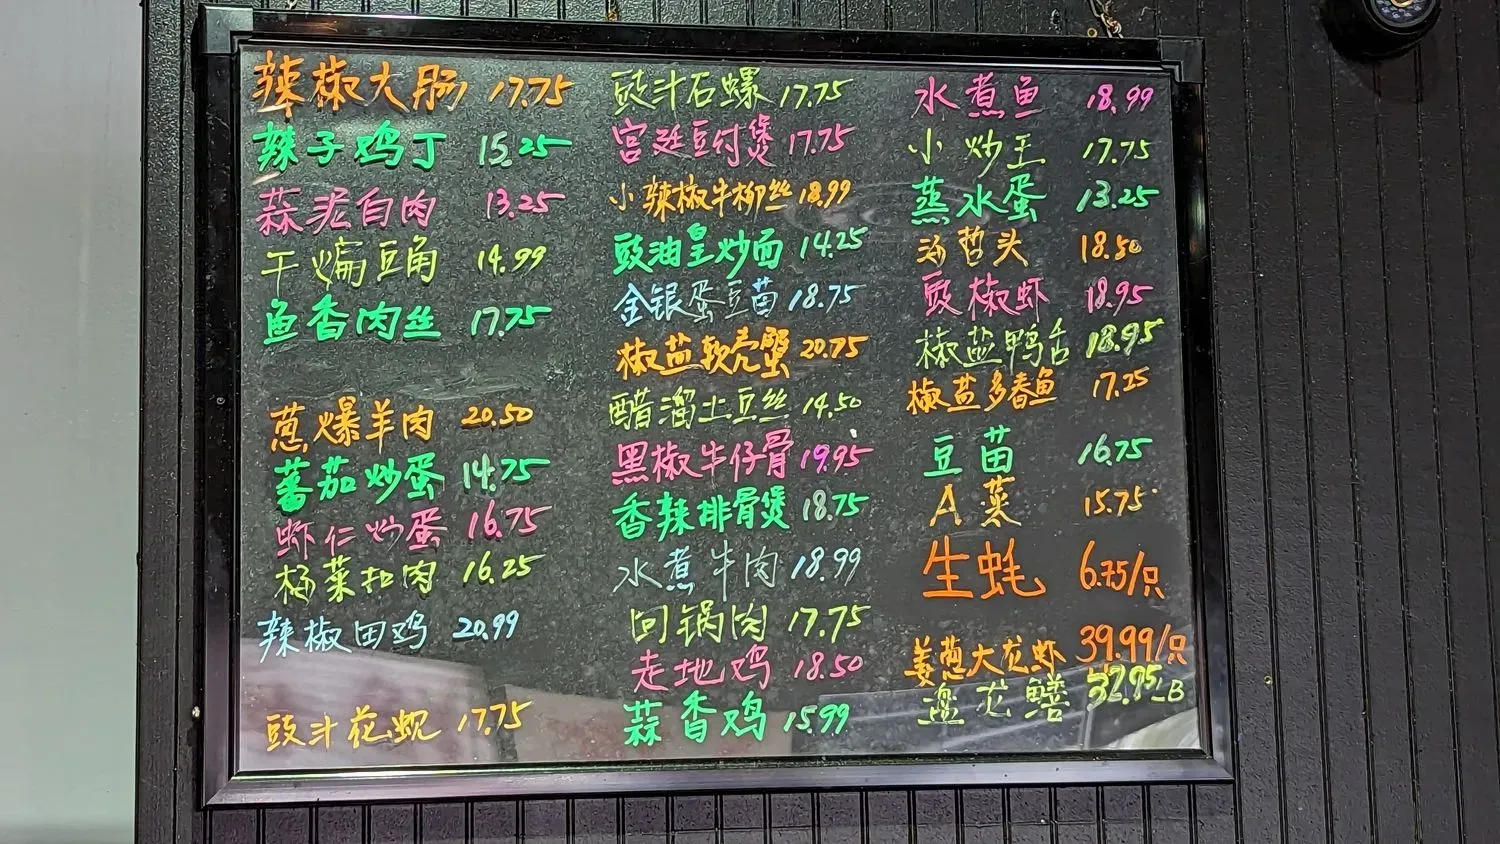 辣椒大肠 17.75
辣子鸡丁 15.25
蒜泥白肉 13.25
干煸豆角 14.99
鱼香肉丝 17.75
葱爆羊肉 20.50
蕃茄炒蛋 14.75
虾仁炒蛋 16.75
梅菜扣肉 16.25
辣椒田鸡 20.99
豉汁花蚬 17.75
豉汁石螺 17.75
宫廷豆付煲 17.75
小辣椒牛柳丝 18.99
豉油皇炒面 14.25
金银蛋豆苗 18.75
椒盐软壳蟹 20.75
醋溜土豆丝 14.50
黑椒牛仔骨 19.95
香辣排骨煲 18.75
水煮牛肉 18.99
回锅肉 17.75
走地鸡 18.50
蒜香鸡 15.99
水煮鱼 18.99
小炒王 17.75
蒸水蛋 13.25
头 18.50
豉椒虾 18.95
椒盐鸭舌 18.95
椒盐多春鱼 17.25
豆苗 16.75
A菜 15.75
生蚝 6.75/只
姜葱大龙虾 39.99/只
盘龙鳝 32.95LB